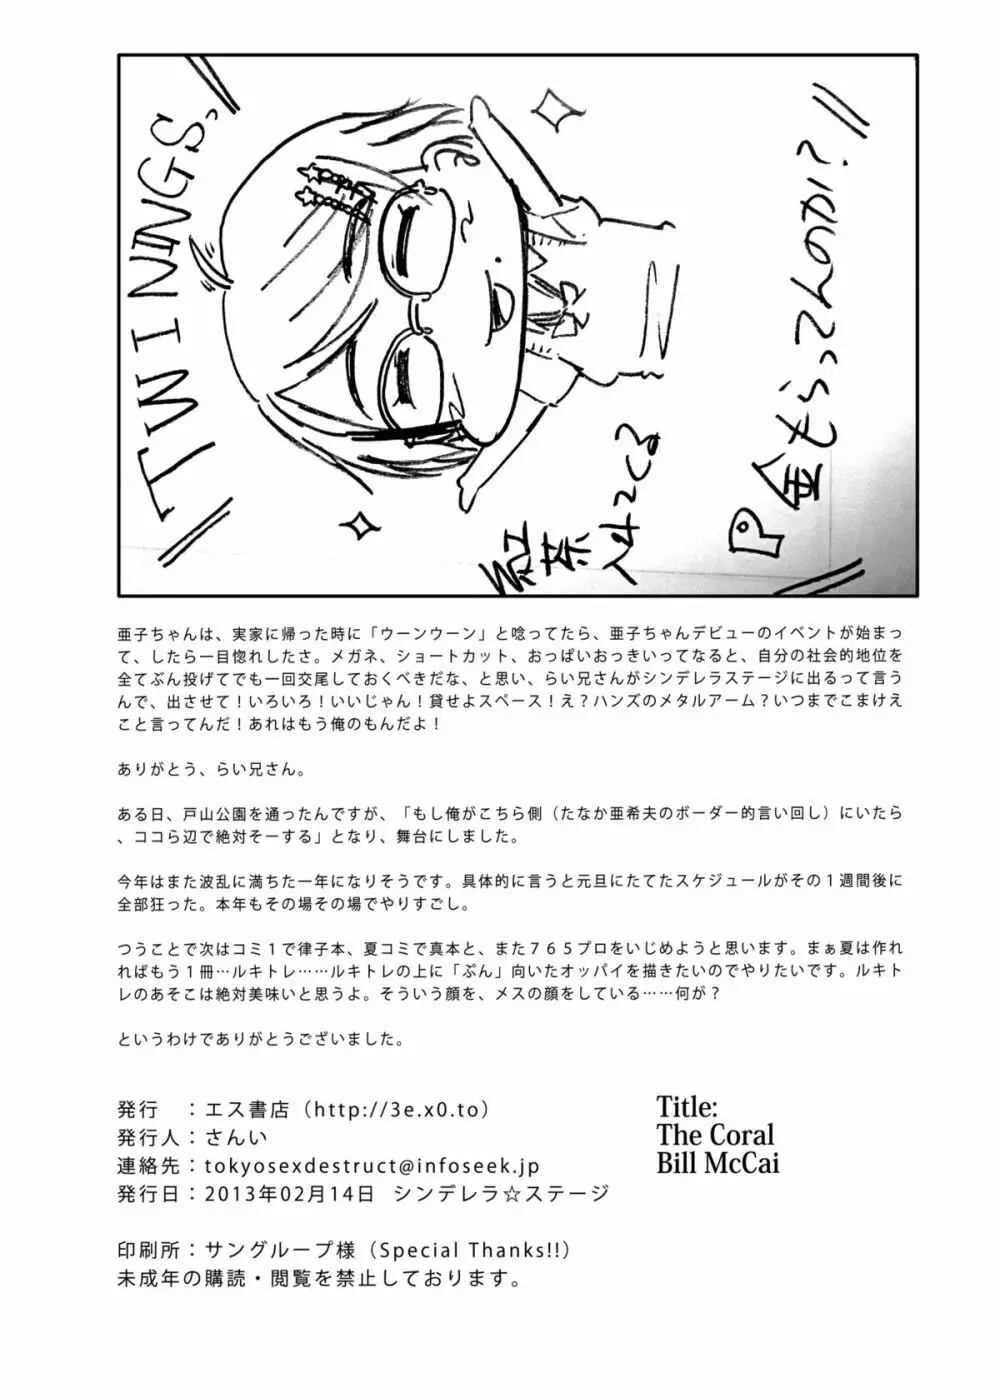 TWININGS,
紅茶入ってる
P金もらってんのかい?
亜子ちゃんは、実家に帰った時に「ウーンウーン」と唸ってたら、亜子ちゃんデビューのイベントが始まっ
て、したら一目惚れしたさ。メガネ、ショートカット、おっぱいおっきいってなると、自分の社会的地位を
全てぶん投げてでも一回交尾しておくべきだな、と思い、らい兄さんがシンデレラステージに出るって言う
んで、出させて!いろいろ!いいじゃん!貸せよスペース!え?ハンズのメタルアーム?いつまでこまけえ
こと言ってんだ!あれはもう俺のもんだよ!
ありがとう、らい兄さん。
ある日、戸山公園を通ったんですが、「もし俺がこちら側（たなか亜希夫のボーダー的言い回し）にいたら
、ココら辺で絶対そーする」となり、舞台にしました。
今年はまた波乱に満ちた一年になりそうです。具体的に言うと元旦にたてたスケジュールがその１週間後に
全部狂った。本年もその場その場でやりすごし。
つうことで次はコミ１で律子本、夏コミで真本と、また７６５プロをいじめようと思います。まぁ夏は作れ
ればもう１冊…ルキトレ……ルキトレの上に「ぷん」向いたオッパイを描きたいのでやりたいです。ルキト
レのあそこは絶対美味いと思うよ。そういう顔を、メスの顔をしている……何が?
というわけでありがとうございました。
発行　：エス書店（http://3e.x0.to）
発行人：さんい
連絡先：tokyosexdestruct@infoseek.jp
発行日：2013年02月14日　シンデレラ☆ステージ
印刷所：サングループ様（Special Thanks!!）
未成年の購読・閲覧を禁止しております。
Title:
The Coral
Bill McCai